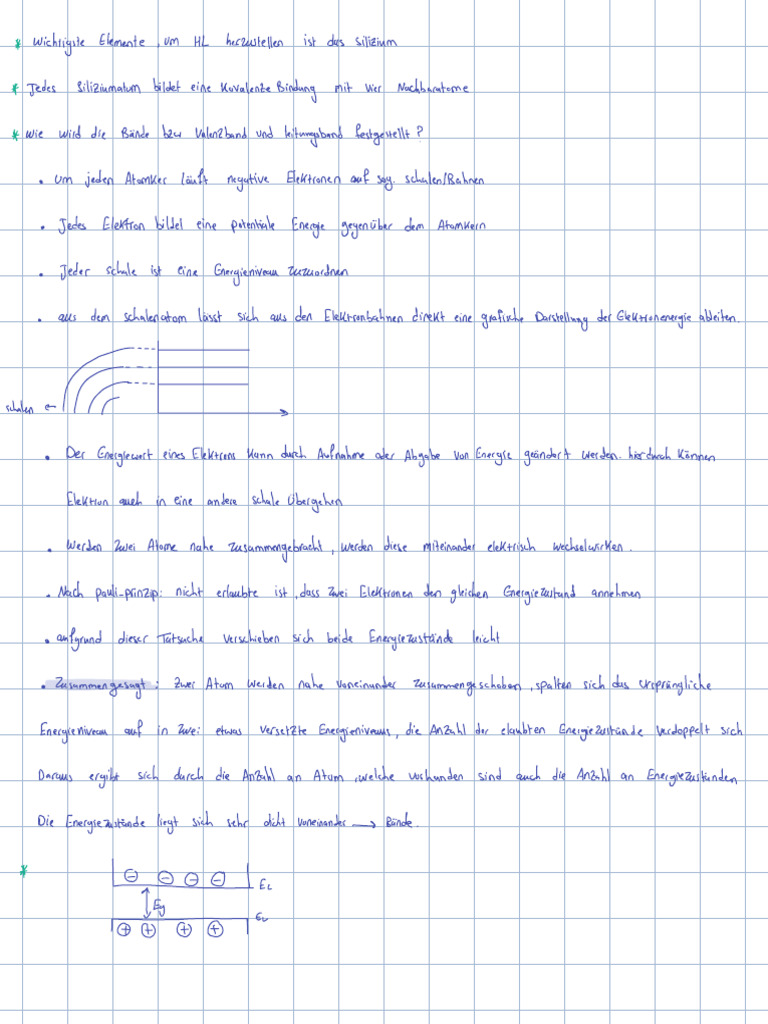 * Wichtigste Elemente, um HL herzustellen ist das Silizium
* Jedes Siliziumatum bildet eine Kovalente Bindung mit vier Nachbaratome
* Wie wird die Bände bzw Valenzband und leitungsband festgestellt?
• Um jeden Atomker läuft negative Elektronen auf sog. schalen/Bahnen
• Jedes Elektron bildel eine potentiale Energie gegenüber dem Atomkern
• Jeder schale ist eine Energieniveau zuzuordnen
• aus dem schalenatom lässt sich aus den Elektronbahnen direkt eine grafische Darstellung der Elektronenergie ableiten.
schalen ←
• Der Energiewert eines Elektrons kann durch Aufnahme oder Abgabe von Energie geändort werden. hierdurch können
Elektron auch in eine andere schale übergehen
• Werden zwei Atome nahe zusammengebracht, werden diese miteinander elektrisch wechselwirken.
• Nach pauli-prinzip: nicht erlaubte ist, dass zwei Elektronen den gleichen Energiezustand annehmen
• aufgrund dieser Tatsache verschieben sich beide Energiezustände leicht
• Zusammengesagt: zwei Atom werden nahe voneinander zusammengeschoben, spalten sich das ursprüngliche
Energieniveau auf in zwei etwas versetzte Energieniveaus, die Anzahl der elaubten Energiezustände verdoppelt sich
Daraus ergibt sich durch die Anzahl an Atom, welche vorhanden sind auch die Anzahl an Energiezuständen
Die Energiezustände liegt sich sehr dicht voneinander → Bände.
*
− − − −
EL
Eg
Ev
+ + + +